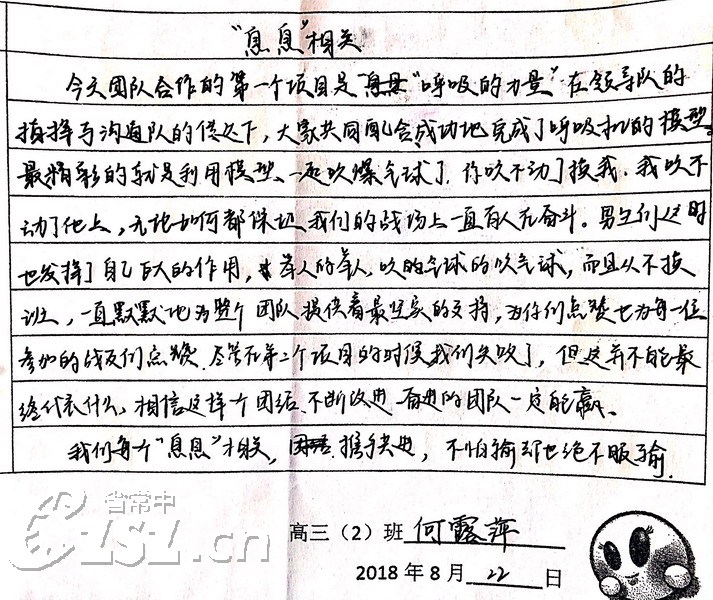 “息息”相关
今天团队合作的第一个项目是“呼吸的力量”在领导队的
指挥与沟通队的传达下，大家共同配合成功地完成了呼吸机的模型
最精彩的就是利用模型一起吹爆气球了，你吹不动了换我，我吹不
动了他上，无论如何都保证我们的战场上一直有人在奋斗。男生们这时
也发挥了自己巨大的作用，举人的举人，吹气球的吹气球，而且从不换
班，一直默默地为整个团队提供着最坚实的支持，为你们点赞也为每一位
参加的战友们点赞。尽管在第二个项目的时候我们失败了，但这并不能最
终代表什么，相信这样个团结、不断改进、奋进的团队一定能赢。
我们每个“息息”相关，携手共进，不怕输却也绝不服输。
省常中
CSLSZ.cn
高三（2）班 何露萍
2018年8月 22 日